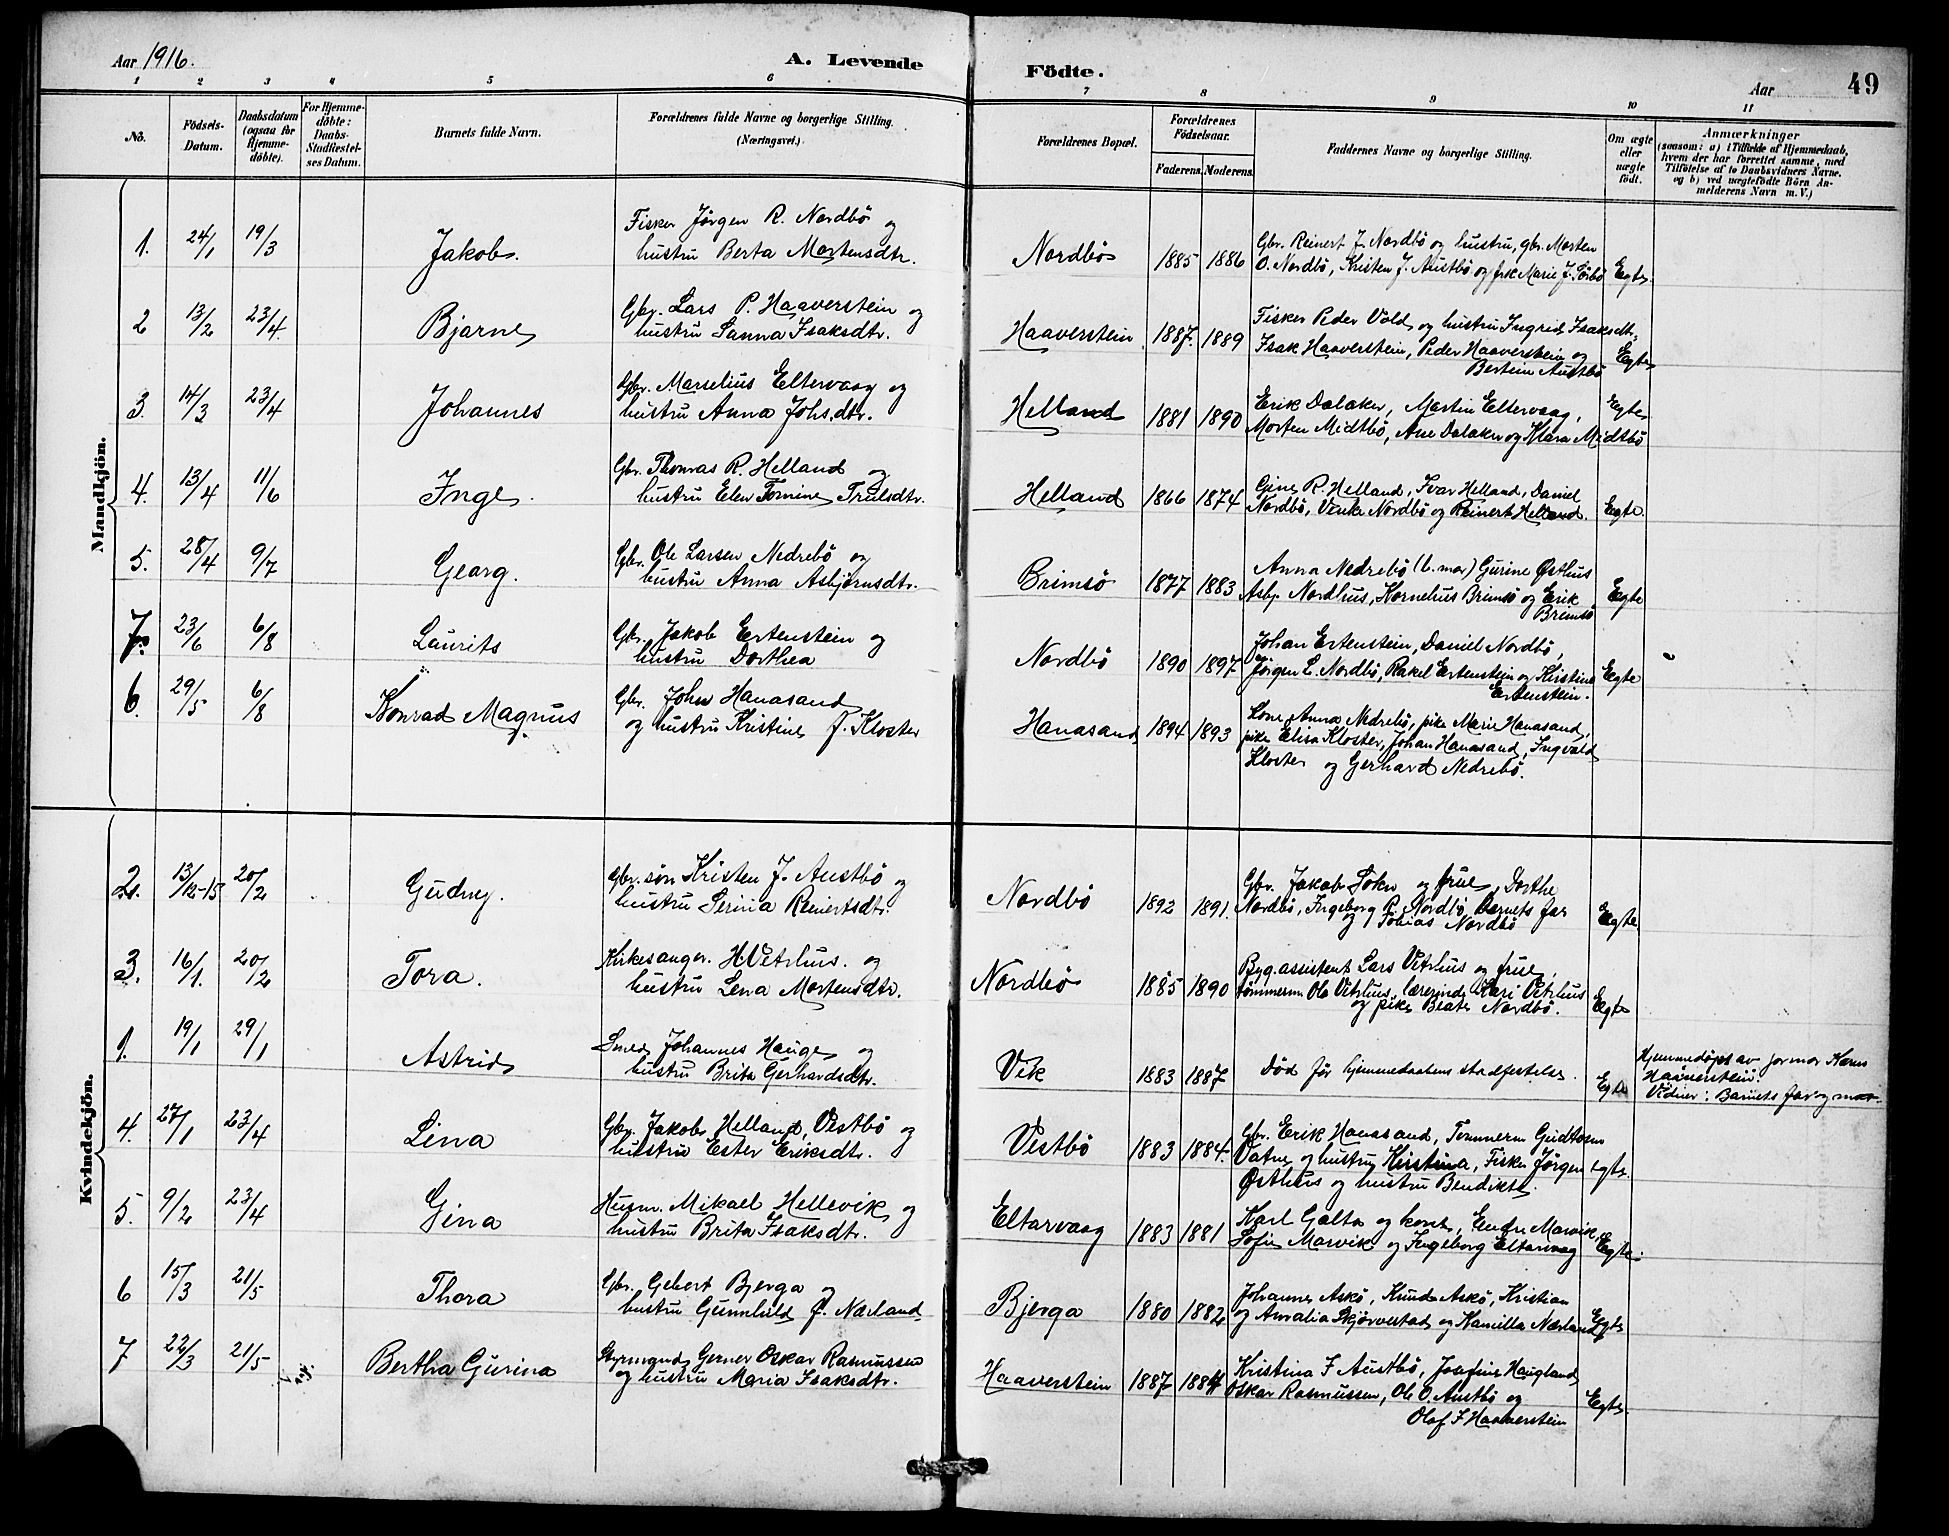 Aar 1916.
A. Levende Födte.
Aar
49
1 2 3 4 5 6 7 8 9 10 11
No.
Födsels-Datum.
Daabsdatum (ogsaa for Hjemmedöbte).
For Hjemmedöbte: Daabs-Stadfæstelses Datum.
Barnets fulde Navn.
Forældrenes fulde Navne og borgerlige Stilling. (Næringsvei.)
Forældrenes Bopæl.
Forældrenes Födselsaar.
Faderens. Moderens.
Faddernes Navne og borgerlige Stilling.
Om ægte eller uægte födt.
Anmærkninger
(saasom: a) i Tilfælde af Hjemmedaab, hvem der har forrettet samme, med Tilföielse af to Daabsvidners Navne. og b) ved uægtefödte Börn Anmelderens Navn m.V.)
Mandkjön.
1. 24/1 19/3 Jakob.
Fisker Jørgen R. Nordbö og
hustru Berta Mortensdtr.
Nordbö 1885 1886
Gbr. Reinert J. Nordbö og hustru, gbr. Morten
O. Nordbö, Kristen J. Austbö og frk Marie J. Sörbö
Egte.
2 13/2 23/4. Bjarne
Gbr. Lars P. Haaverstein og
hustru Sanna Isaksdtr.
Haaverstein. 1887. 1889
Fisker Peder Vold og hustru Ingrid Isaksdtr.
Isak Haaverstein, Peder Haaverstein og
Bertein Austbö
Egte
3. 14/3 23/4 Johannes
Gbr. Marselius Eltervaag og
hustru Anna Johs.dtr.
Helland 1881 1890
Erik Dalaker, Martin Eltervaag,
Morten Midtbö, Ane Dalaker og Klara Midtbö
Egte
4. 13/4 11/6 Inge.
Gbr. Thomas R. Helland og
hustru Elen Tomine Trulsdtr.
Helland 1866 1874
Gine R. Helland, Ivar Helland, Daniel
Nordbö, Venke Nordbö og Reinert Helland.
Egte.
5. 28/4 9/7 Georg.
Gbr. Ole Larsen Nedrebö og
hustru Anna Asbjørnsdtr.
Brimsö 1877 1883
Anna Nedrebö (b. mor) Gurine Østhus
Asbj. Nordhus, Kornelius Brimsö og Erik
Brimsö
Egte
7. 23/6 6/8 Laurits
Gbr. Jakob Eertenstein og
hustru Dorthea
Nordbö 1890 1897
Johan Ertenstein, Daniel Nordbö,
Jørgen L. Nordbö, Rakel Ertenstein og Kirstine
Ertenstein.
Egte
6. 29/5 6/8 Konrad Magnus
Gbr. John Hanasand
og hustru Kristine f. Kloster
Hanasand 1894 1893
Lone Anna Nedrebö, pike Marie Hanasand,
pike Elisa Kloster, Johan Hanasand, Ingvald
Kloster og Gerhard Nedrebö.
Kvindekjön.
2. 13/12-15 20/2 Gudny.
Gbr. søn Kristen J. Austbö og
hustru Serina Reinertsdtr.
Nordbö 1892 1891.
Gbr. Jakob Sokn og frue, Dorthe
Nordbö, Ingeborg R. Nordbö, Barnets far
og Tobias Nordbö
Egte
3. 16/1. 20/2 Tora.
Kirkesanger. H. Vetrhus. og
hustru Lena Mortensdtr.
Nordbö 1885 1890
Byg.assistent Lars Vetrhus og frue,
tömmerm. Ole Vetrhus, lærerinde Kari Vetrhus
og pike Beate Nordbö.
Egte
1. 19/1 29/1 Astrid
Smed Johannes Hauge og
hustru Brita Gerhardsdtr.
Vik 1883 1887
Död før hjemmedaabens stadfestelse.
Egte
Hjemmedøpt av jormor Karen
Haaverstein.
Vidner: Barnets far og mor.
4. 27/1 23/4 Lina
Gbr. Jakob Helland, Vestbö og
hustru Ester Eriksdtr.
Vestbö 1883 1884.
Gbr. Erik Hanasand, Tömmerm Gudtorm
Vatne og hustru Kirstina, Fisker Jørgen
Østhus og hustru Bendikte.
Egte.
5. 9/2 23/4 Gina
Husm. Mikael Hellevik og
hustru Brita Isaksdtr.
Eltarvaag 1883 1881
Karl Galta og kone, Endre Marvik,
Sofie Marvik og Ingeborg Eltarvaag
Egte.
6 15/3 21/5 Thora
Gbr. Gebert Bjerga og
hustru Gunnhild f. Nærland.
Bjerga 1880 1882
Johannes Askö, Knud Askö, Kristian
og Amalia Skjörvestad og Kamilla Nærland
Egte
7 22/3 21/5 Bertha Gurina
Styrmand Gerner Oskar Rasmussen
og hustru Maria Isaksdtr.
Haaverstein 1887 1884
Kristina F Austbö, Josefine Haugland,
Oskar Rasmussen, Ole O. Austbö og
Olaf I Haaverstein
Egte.